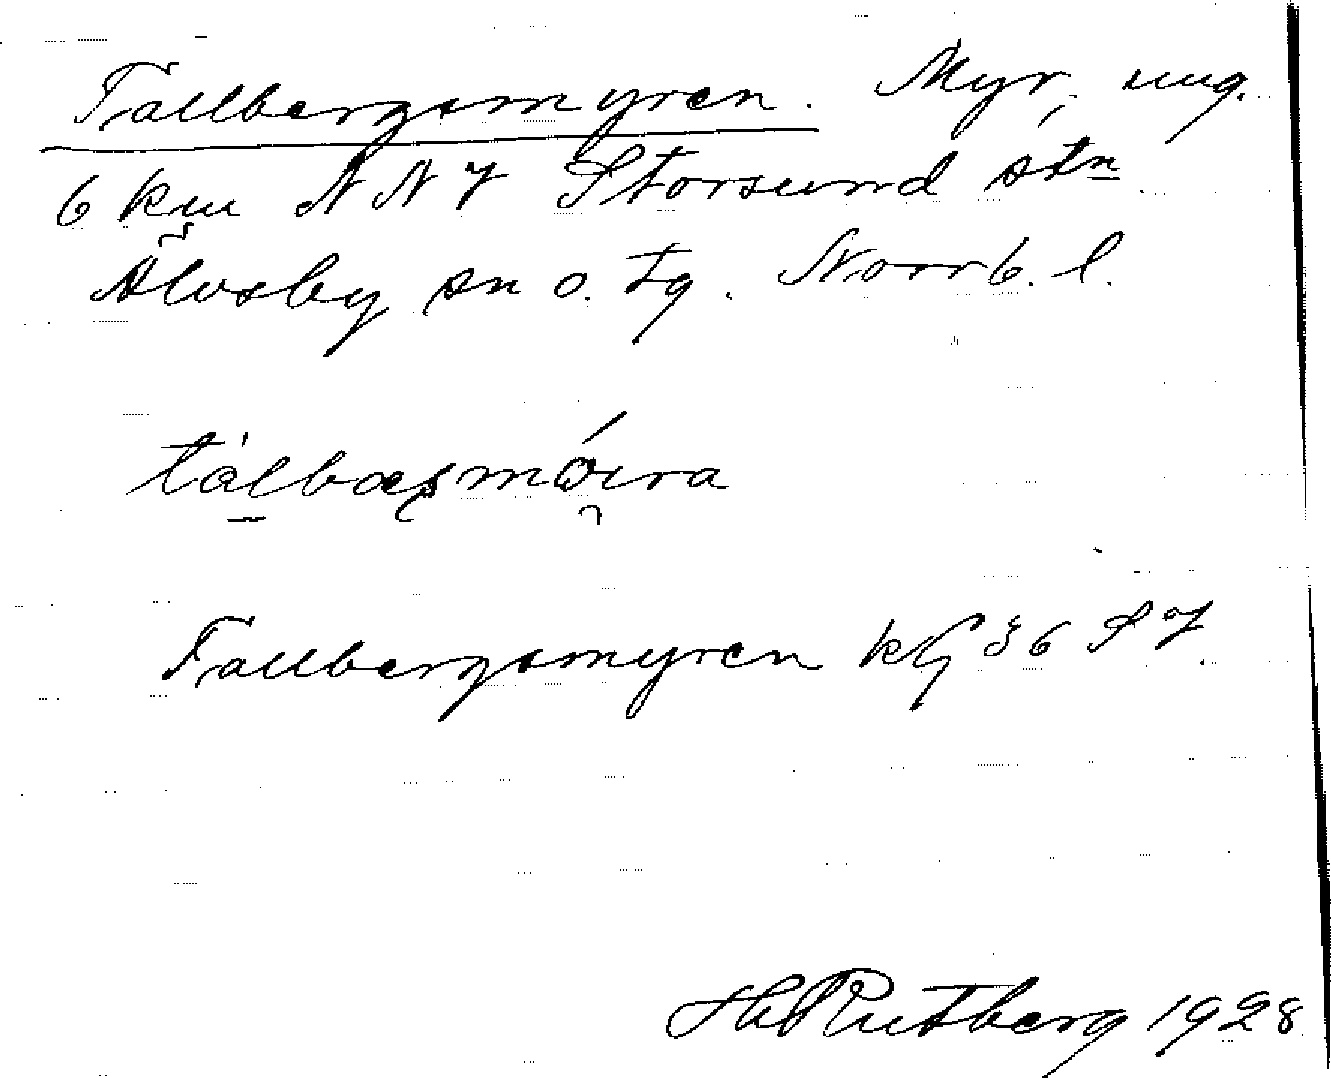 Tallbergsmyren. Myr, ung.
6 km NNV Storsund stn
Älvsby sn o. tg. Norrb. l.
Tallbergsmyren kg 36 SV
H Rutberg 1928